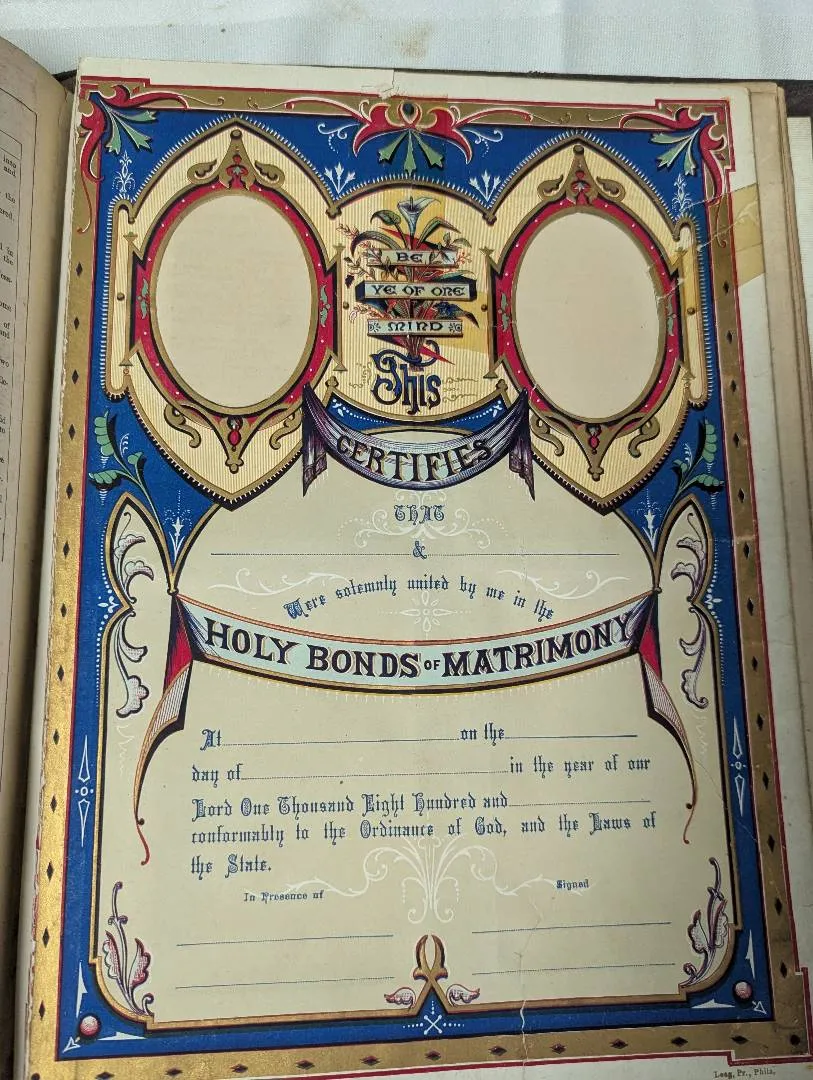 BE
YE OF ONE
MIND
This
CERTIFIES
THAT
&
Were solemnly united by me in the
HOLY BONDS OF MATRIMONY
At on the
day of in the year of our
Lord One Thousand Eight Hundred and
conformably to the Ordinance of God, and the Laws of
the State.
In Presence of Signed
Long, Pr., Phila.